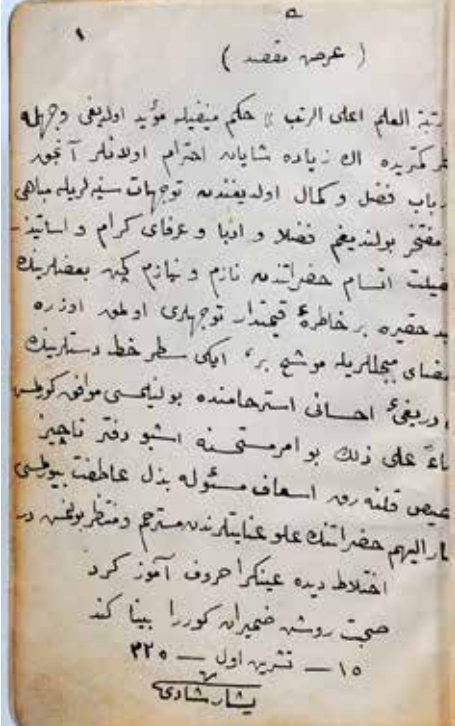 ١
( عرض مقصد )
رتبة العلم اعلى الرتب » حكم منيفيله مؤيد اولديغى وجهله
كمتريده اك زياده شايان احترام اولانلر آنجق
ارباب فضل و كمال اولديغندن توجهات سنيه لريله مباهى
مفتخر بولنديغم فضلا و ادبا و عرفاى كرام و اساتيذ
فضيلت اتسام حضراتندن نازم و نيازم كچن بعضلرينك
حقيره بر خاطرهٔ قيمتدار توجهلرى اولمق اوزره
امضاى مبجللريله موشح بر ايكى سطر خط دستلرينك
دريغى احسانى استرحامنده بولنيلمسى موافق كورلمش
بناءً على ذلك بو امر مستحسنه اشبو دفتر ناچيز
تخصيص قلنه رق اسعاف مسئوله بذل عاطفت بيورلمسى
مشار اليهم حضراتنك علو عنايتلرندن مسترحم و منتظر بولنمشدر
اختلاط ديده عينكرا حروف آموز كرد
صحبت روشن ضميران كوررا بينا كند
١٥ — تشرين اول — ٣٢٥
يشار شادى